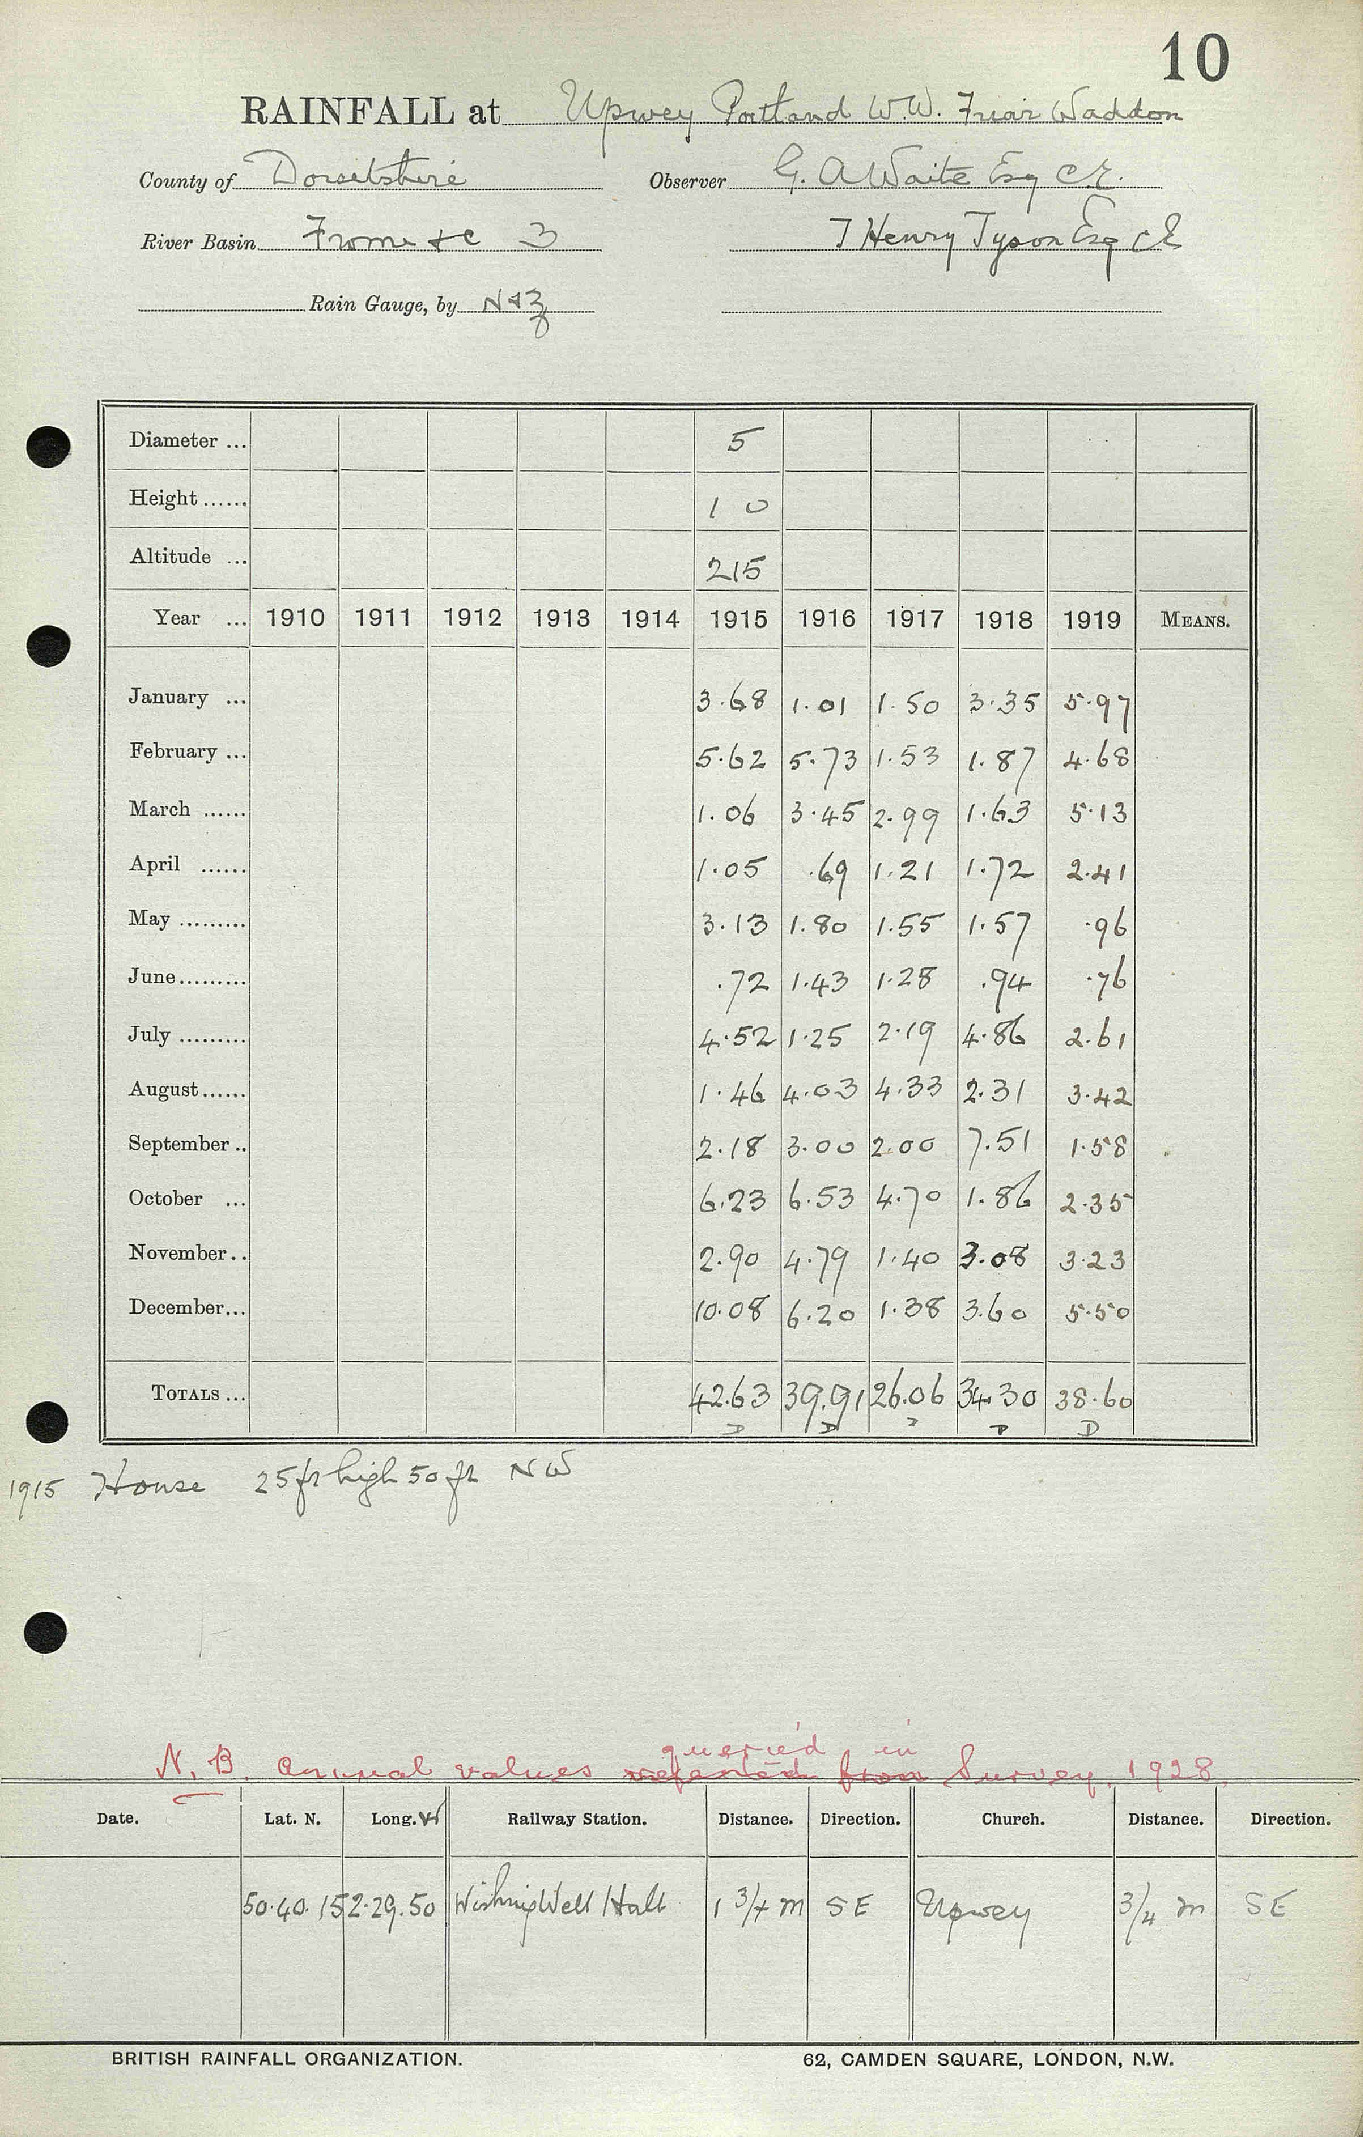 10
RAINFALL at Upwey Portland W.W. Friar Waddon
County of Dorsetshire Observer G. A Waite Esq C.E.
River Basin Frome &c 3 T Henry Tyson Esq CE
Rain Gauge, by N & Z
Diameter ... 5
Height ...... 1 0
Altitude ... 215
Year ... 1910 1911 1912 1913 1914 1915 1916 1917 1918 1919 MEANS.
January ... 3.68 1.01 1.50 3.35 5.97
February ... 5.62 5.73 1.53 1.87 4.68
March ...... 1.06 3.45 2.99 1.63 5.13
April ...... 1.05 .69 1.21 1.72 2.41
May ......... 3.13 1.80 1.55 1.57 .96
June......... .72 1.43 1.28 .94 .76
July ......... 4.52 1.25 2.19 4.86 2.61
August...... 1.46 4.03 4.33 2.31 3.42
September .. 2.18 3.00 2.00 7.51 1.58
October ... 6.23 6.53 4.70 1.86 2.35
November.. 2.90 4.79 1.40 3.08 3.23
December... 10.08 6.20 1.38 3.60 5.50
TOTALS ... 42.63 39.91 26.06 34.30 38.60
D D D D D
1915 House 25 ft high 50 ft NW
queried in
N.B. Annual values from Survey, 1928.
Date. Lat. N. Long. W Railway Station. Distance. Direction. Church. Distance. Direction.
50.40.15 2.29.50 Wishing Well Halt 1 3/4 m SE Upwey 3/4 m SE
BRITISH RAINFALL ORGANIZATION. 62, CAMDEN SQUARE, LONDON, N.W.